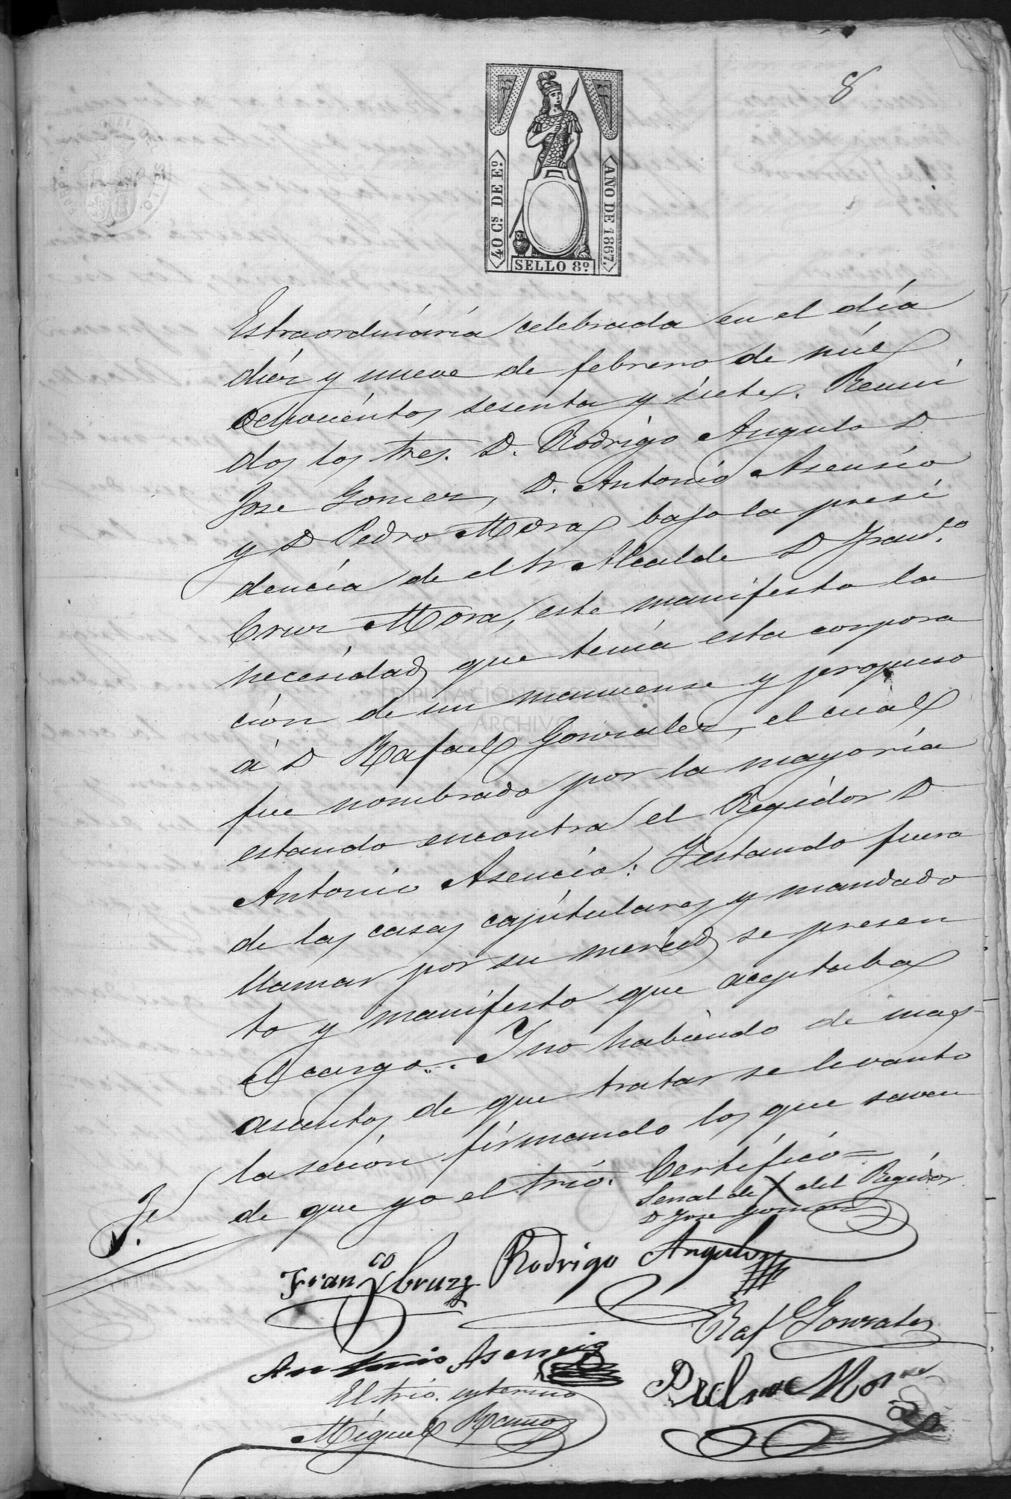 8
40 Cs. DE Eo.
AÑO DE 1867.
SELLO 8º
Estraordinaria celebrada en el día
diez y nueve de febrero de mil
ochocientos sesenta y siete. Reuni
dos los tres. D. Rodrigo Angulo D.
Jose Gomez, D. Antonio Asensio
y D Pedro Mora bajo la presi
dencia de el Sr Alcalde D Franco.
Cruz Mora, este manifesto la
necesidad que tenia esta corpora
ción de un manuense y propuso
DIPUTACIÓN DE SEVILLA
ARCHIVO
á D Rafael Gonzalez, el cual
fue nombrado por la mayoría
estando encontra el Regidor D
Antonio Asencio: Y estando fuera
de las casas capitulares y mandado
llamar por su merced se presen
to y manifesto que aceptaba
el cargo. Y no habiendo de mas
asuntos de que tratar se levanto
la seción firmando los que saven
de que yo el Srio. Certifico=
Senal de X del Regidor
D Jose Gomez
Franco Cruz
Rodrigo Angulo
Raf Gonzalez
Antonio Asencio
El Srio. interino
Miguel Ramos
Mora